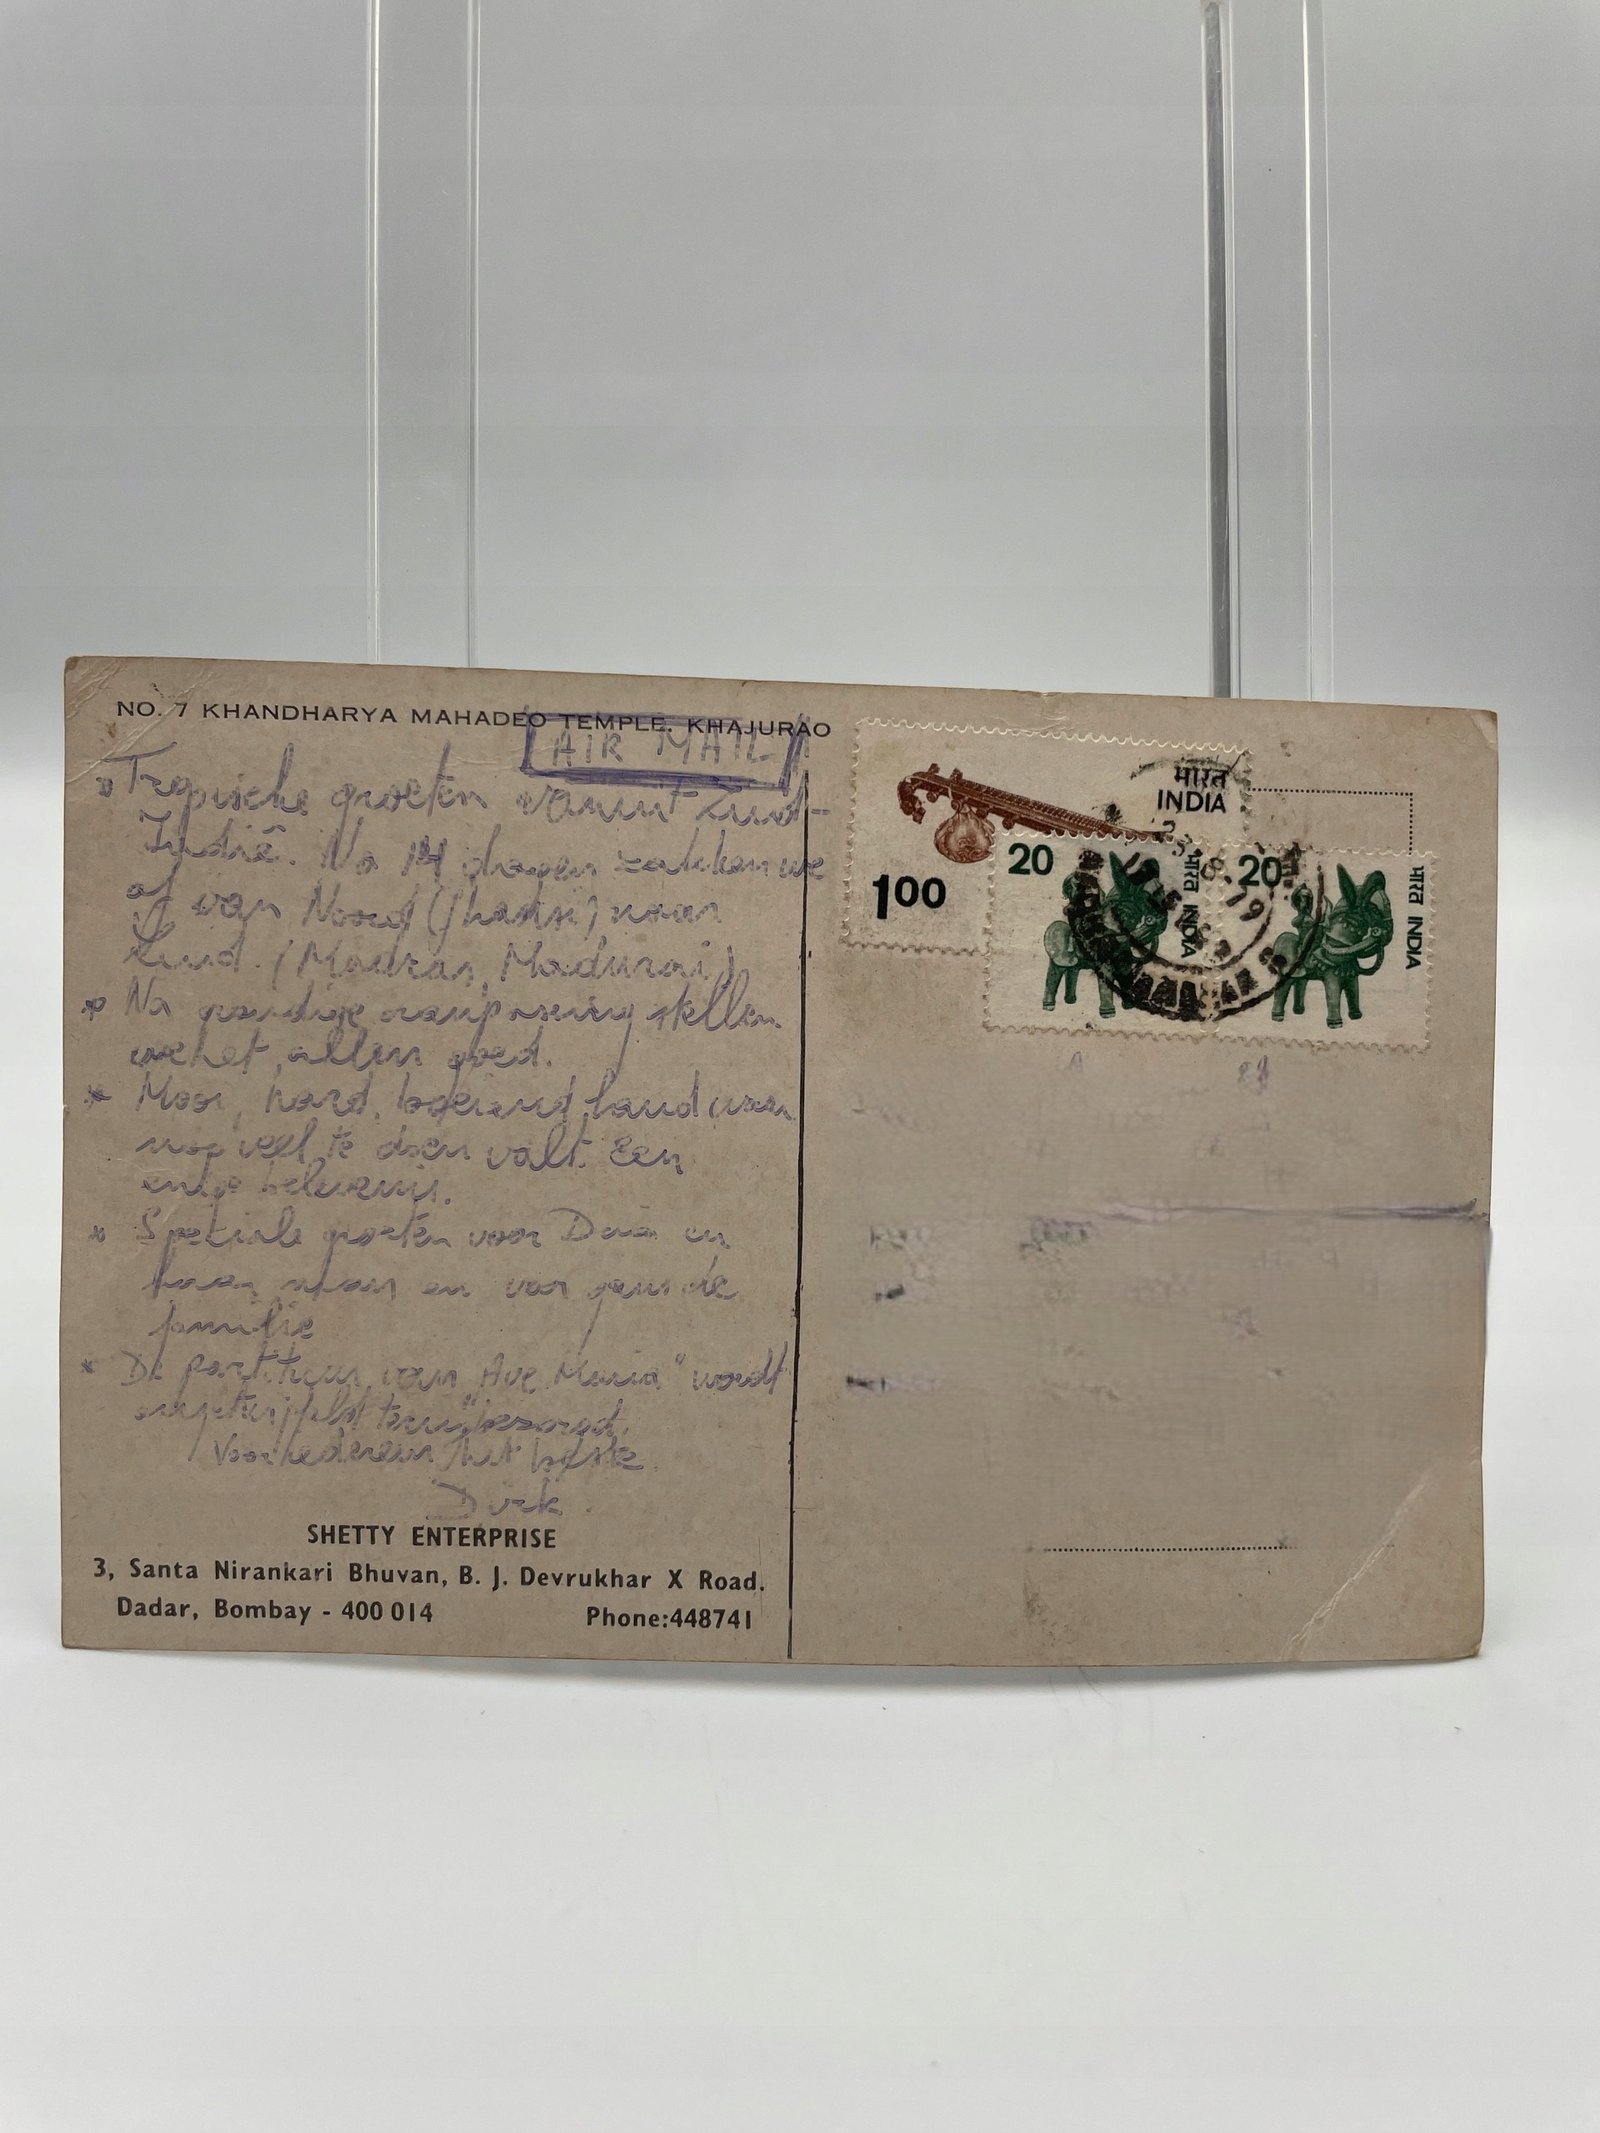 NO. 7 KHANDHARYA MAHADEO TEMPLE. KHAJURAO
AIR MAIL
Tropische groeten vanuit Zuid-
Indië. Na 14 dagen zakken we
af van Noord ( ) naar
Zuid. (Madras, Madurai)
* Na grondige stellen
we het allen goed.
* Mooi, hard, boeiend land waar
nog veel te doen valt. Een
enige belevenis.
* Speciale groeten voor en
haar man en voor gans de
familie
* De partituur van "Ave Maria" wordt
bezorgd.
Voor iedereen het beste
Dirk.
SHETTY ENTERPRISE
3, Santa Nirankari Bhuvan, B. J. Devrukhar X Road.
Dadar, Bombay - 400 014 Phone:448741
भारत
INDIA
100
20
भारत INDIA
20
भारत INDIA